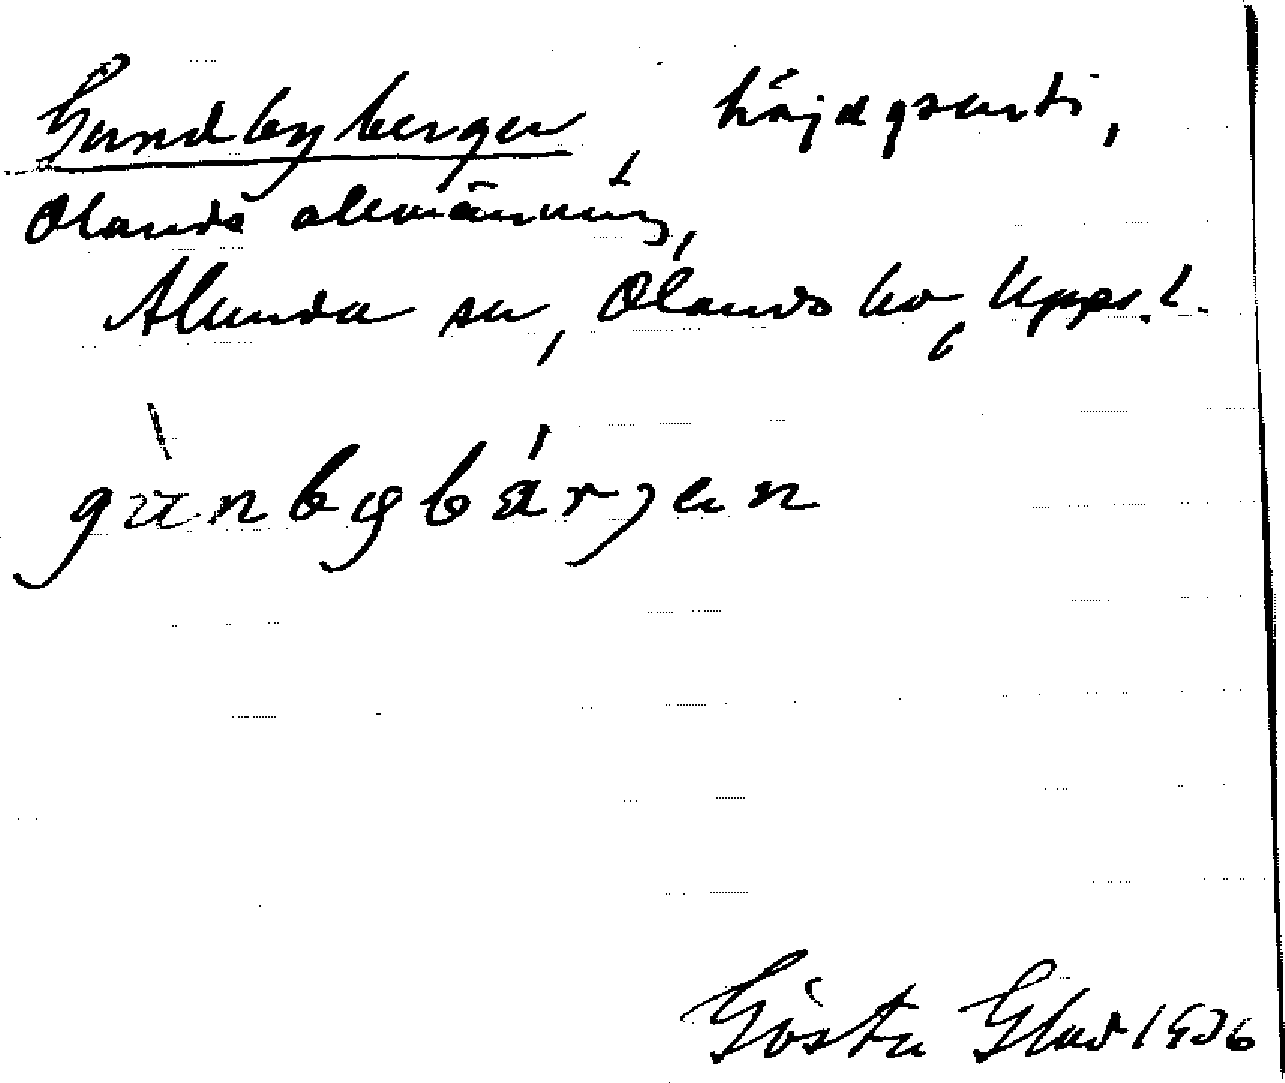 Gundbybergen, höjdparti,
Olands allmänning,
Alunda sn, Olands hd, Upps. l.
gùnbybárjen
Gösta Glad 1936